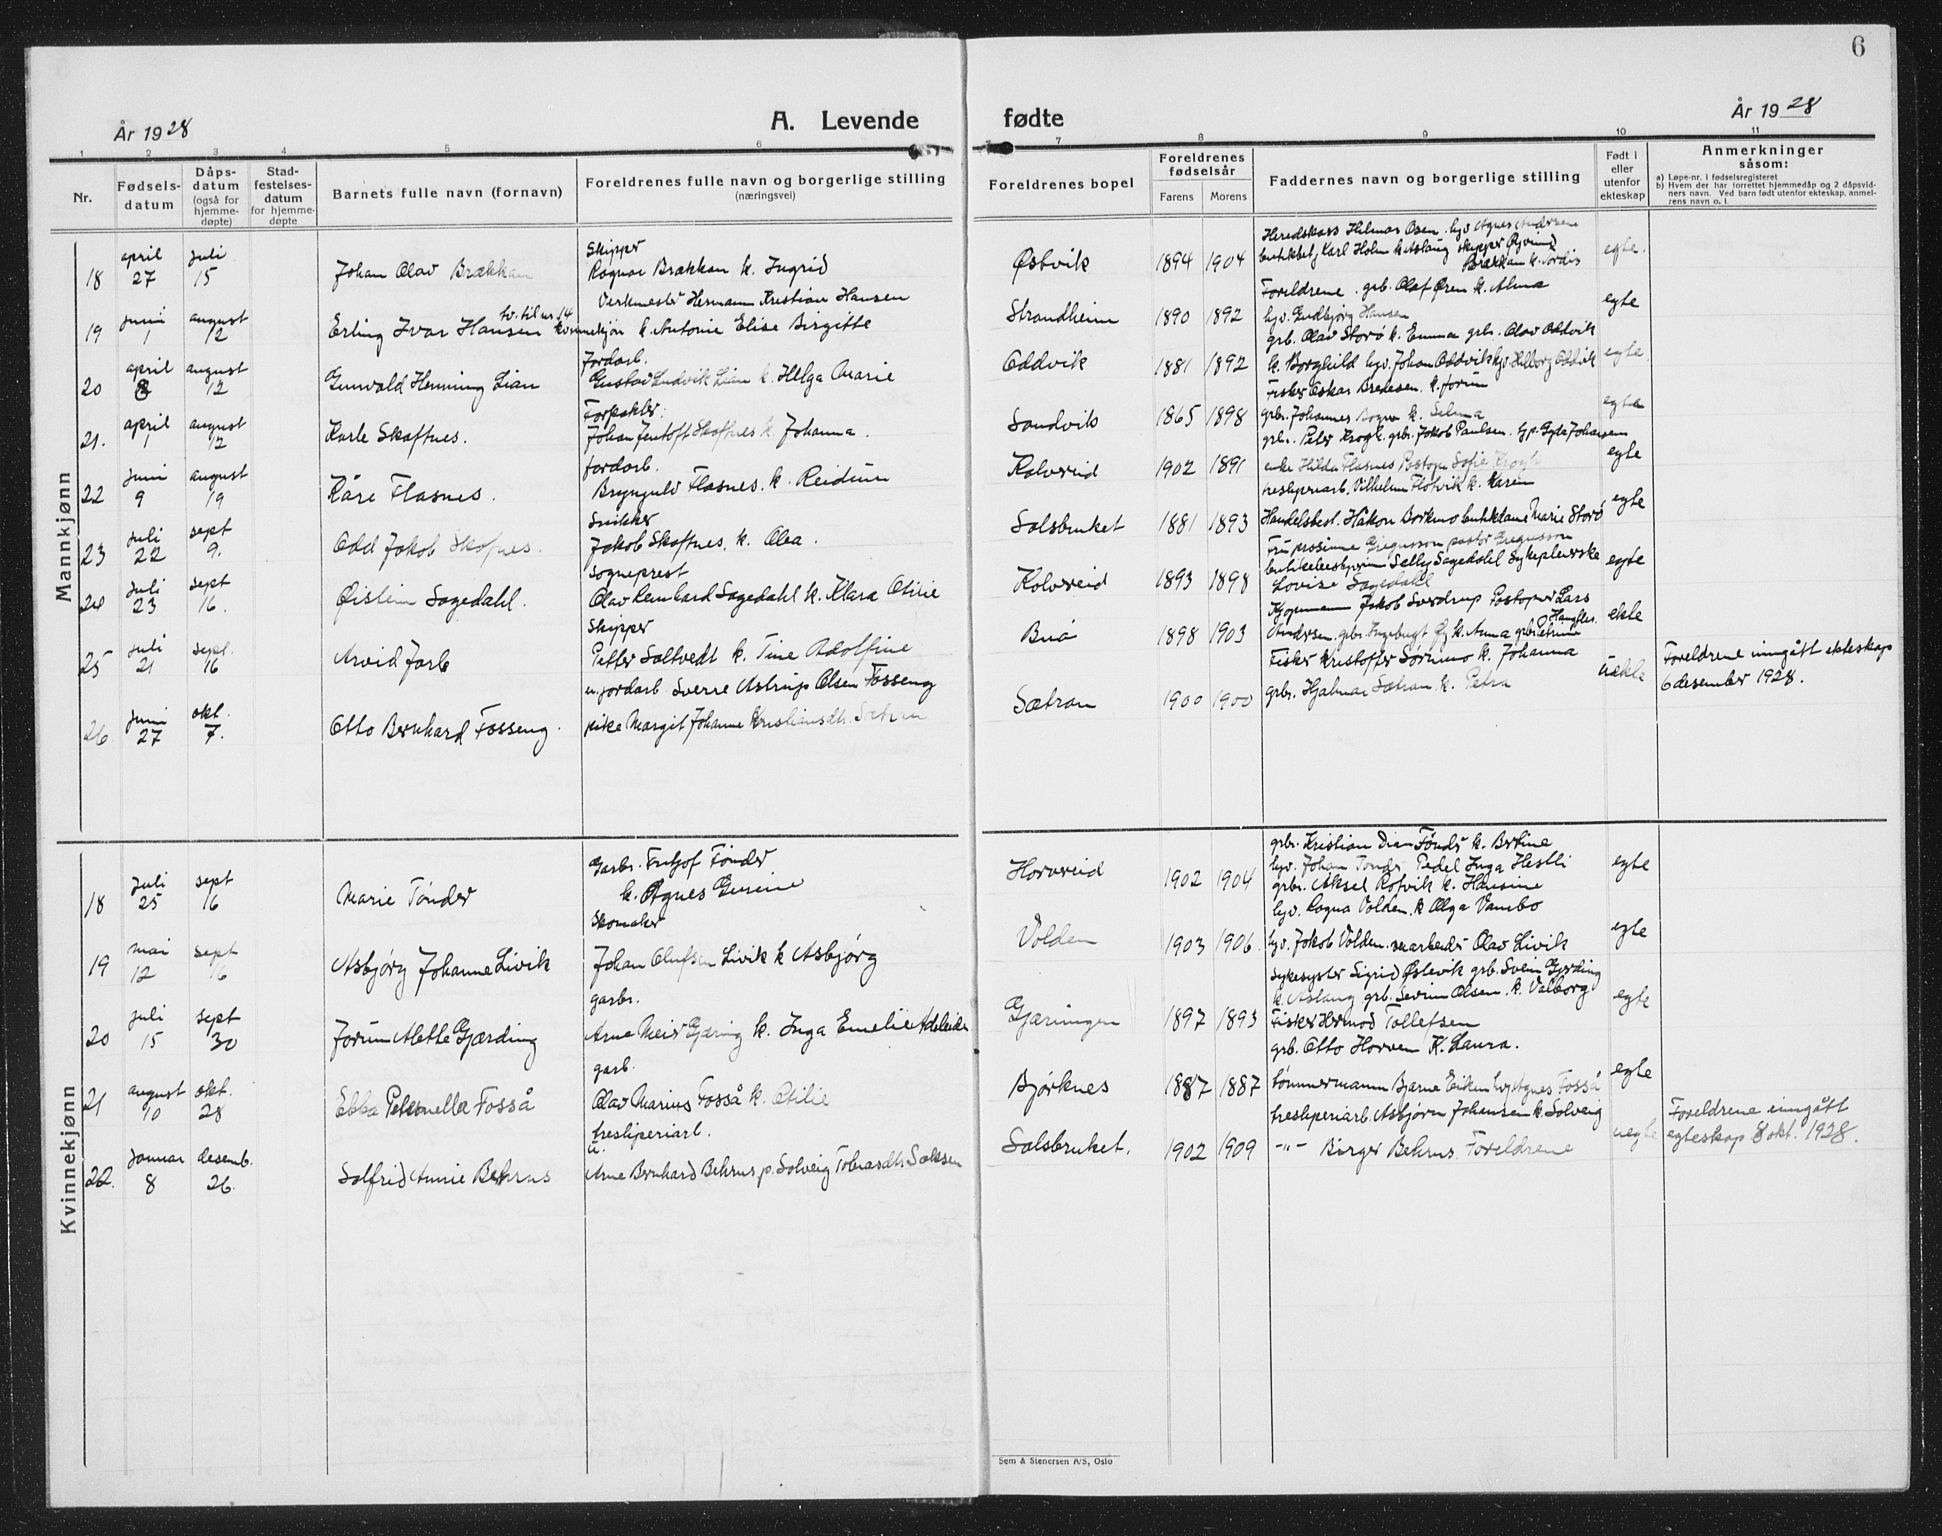 6
År 1928
A. Levende fødte
År 1928
1 2 3 4 5 6 7 8 9 10 11
Nr.
Fødsels-
datum
Dåps-
datum
(også for
hjemme-
døpte)
Stad-
festelses-
datum
for hjemme-
døpte
Barnets fulle navn (fornavn)
Foreldrenes fulle navn og borgerlige stilling
(næringsvei)
Foreldrenes bopel
Foreldrenes
fødselsår
Farens Morens
Faddernes navn og borgerlige stilling
Født i
eller
utenfor
ekteskap
Anmerkninger
såsom:
a) Løpe-nr. i fødselsregisteret
b) Hvem der har forrettet hjemmedåp og 2 dåpsvid-
ners navn. Ved barn født utenfor ekteskap, anmel-
rens navn o. l.
Mannkjønn
18 april 27 juli 15 Johan Olav Brækkan
Skipper
Ragnar Brækkan k. Ingrid
Østvik 1894 1904
Heredskass Hilmar Osen. hv. Agnes Andersen
Karl Holm k. Aslaug skipper Øyvind
Brækkan k. Tordis
egte.
19 juni 1 august 12 Erling Ivar Hansen
tv. til nr. 14
kvinnekjøn
Verkmester Hermann Kristian Hansen
k. Antonie Elise Birgitte
Strandheim 1890 1892
Foreldrene. grb. Olaf Øren k. Alma
hv. Gudbjørg Hansen
egte
20 april 8 august 12 Gunvald Henning Lian
Jordarb.
Gustav Ludvik Lian k. Helga Marie
Oddvik 1881 1892
grb. Olav Storø k. Emma grb. Olav Oddvik
k. Borghild hv. Johan Oddvik Oddvik
Fisker Oskar Bredesen. k. Jorun
egte
21. april 1 august 12 Karle Skaftnes.
Johan Jentoft Skaftnes k. Johanna.
Sandvik 1865 1898
grb. Johannes k. Selma
grb. Peter Krogh. grb. Jakob Paulsen. Gyda Johansen
egte
22 juni 9 august 19 Kåre Flasnes.
jordarb.
Brynjulv Flasnes. k. Reidun
Kolvereid 1902 1891
enke Hilda Flasnes Postopn Sofie Krogh
tresliperiarb. Vilhelm Flotvik k. Karen
egte
23 juli 22 sept 9. Odd Jakob Skofnes.
Snikker
Jakob Skaftnes, k. Olea.
Salsbruket 1881 1893
Handelsbest. Håkon Borkmo Marie Storø
egte
24 juli 23 sept 16. Øistein Sagedahl.
Sogneprest
Olav Reinhard Sagedahl k. Klara Otilie
Kolvereid 1893 1898
pastor Gregusson
Selly Sagedahl Sykepleierske
Lovise Sagedahl
egte
25 juli 21 sept. 16 Arvid Jarl
Skipper
Petter Saltvedt k. Tine Adolfine
Buø 1898 1903
Kjøpmann Jakob Sverdrup Postopner Lars
Andersen. grb. k. Anna
Fisker Kristoffer Sørumo k. Johanna
ekte
26. juni 27 okt. 7. Otto Bernhard Fosseng.
u. jordarb Sverre Astrup Olsen Fosseng
pike Margit Johanne Kristiansdt. Sætran
Sætran 1900 1900
grb. Hjalmar Sætran k. Petra
uekte
Foreldrene inngått ekteskap
6 desember 1928.
Kvinnekjønn
18 juli 25 sept 16 Marie Tønder
Garbr. Fritjof Tønder
k. Agnes Gurine
Horvereid 1902 1904
grb. Kristian Dian Tønder k. Bertine
hv. Johan Tønder Pedel Inga Hestli
grbr. Aksel Rotvik k. Hansine
egte
19 mai 12 sept 16 Asbjørg Johanne Livik
Skomaker
Johan Olufsen Livik k Asbjørg
Volden 1903 1906.
hv. Ragna Volden. k Olga Vambo
hv. Jakob Volden. Olav Livik
egte
20 juli 15 sept 30 Jorun Alethe Gjærding
garbr.
Arne Meier Gjæring k. Inga Emelie Adeleide
Gjæringen 1897 1893
Sykesyster Sigrid Østevik grb. Svein Gjerding
k. Aslaug grb. Severin Olsen. k. Valborg
Fisker Hermod Tollefsen
grb. Otto Horven k. Laura.
egte
21 august 10 okt. 28 Ebba Petternella Fosså
garb.
Olav Marius Fosså k. Otilie
Bjørknes 1887 1887
tømmermann Bjarne Eiken hv. Agnes Fosså
egte
22. januar 8 desemb. 26. Solfrid Annie Behrns
tresliperiarb.
u.
Arne Bernhard Behrns p. Solveig Tobiasdt. Salsen
Salsbruket. 1902 1909
tresliperiarb. Asbjørn Johansen k. Solveig
-"- Birger Behrns. Foreldrene
uegte
Foreldrene inngått
egteskap 8 okt. 1928.
Sem & Stenersen A/S, Oslo